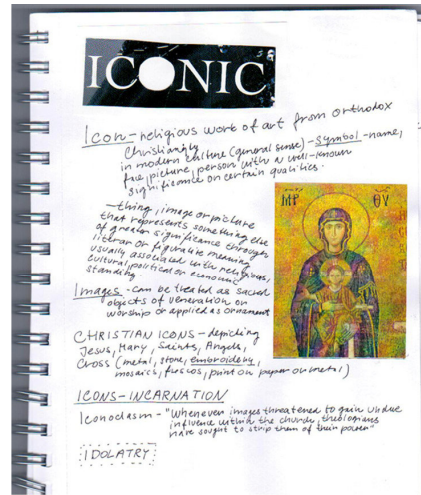 ICONIC
Icon - religious work of art from Orthodox
Christianity
in modern culture (general sense) - symbol - name,
face, picture, person with a well-known
significance or certain qualities.
- thing, image or picture
that represents something else
of greater significance through
literar or figurative meaning
usually associated with religious,
cultural, political or economic
standing
ΜΡ ΘΥ
Images - can be treated as sacred
objects of veneration or
worship or applied as ornament
CHRISTIAN ICONS - depicting
Jesus, Mary, Saints, Angels,
Cross (metal, stone, embroidery,
mosaich, frescos, print on paper or metal)
ICONS - INCARNATION
Iconoclasm - "Whenever images threatened to gain undue
influence within the church, theologians
have sought to strip them of their power"
IDOLATRY